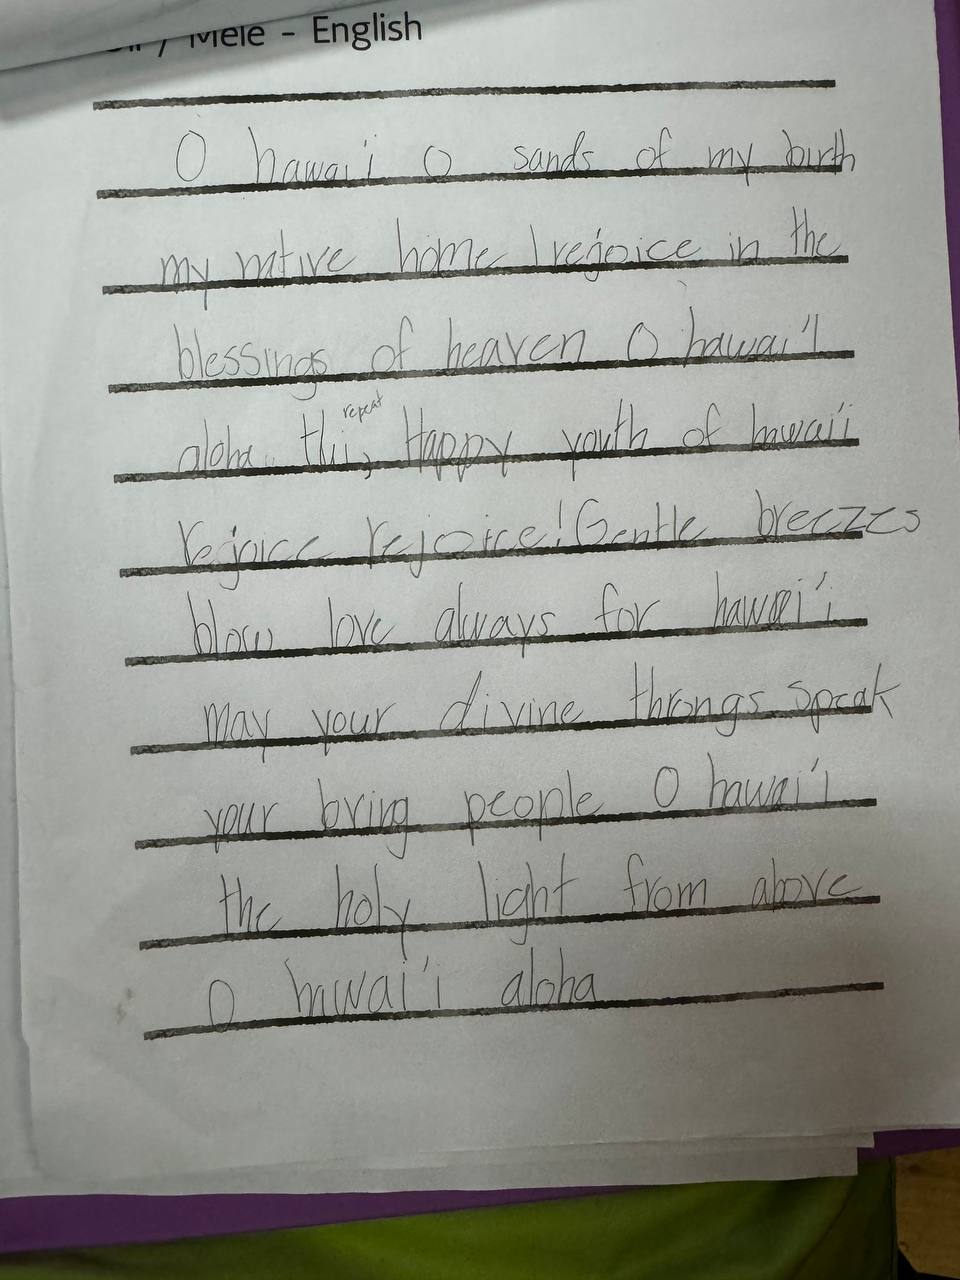 / Mele - English
O hawai'i O sands of my birth
my native home I rejoice in the
blessings of heaven O hawai'i
repeat
aloha thi, Happy youth of hawai'i
rejoice rejoice! Gentle breezes
blow love always for hawai'i
may your divine throngs speak
your bring people O hawai'i
the holy light from above
O hawai'i aloha